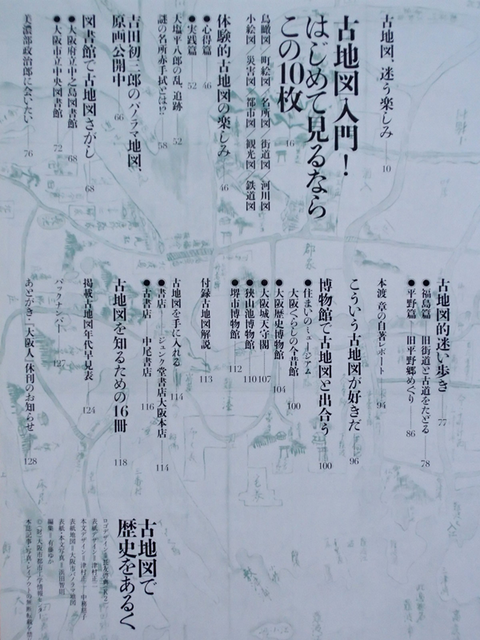 古地図、迷う楽しみ―10
古地図入門!
はじめて見るなら
この10枚 16
鳥瞰図/町絵図/名所図/街道図/河川図
小絵図/災害図/都市図/観光図/鉄道図
体験的古地図の楽しみ 46
●心得篇―46
●実践篇―52
大塩平八郎の乱、追跡 52
謎の名所赤手拭とは!?―58
吉田初三郎のパノラマ地図、
原画公開中 66
図書館で古地図さがし―68
●大阪府立中之島図書館―68
●大阪市立中央図書館―72
美濃部政治郎に会いたい―76
古地図的迷い歩き 77
●福島篇―旧街道と古道をたどる 78
●平野篇―旧平野郷めぐり 86
本渡章の自著レポート―94
こういう古地図が好きだ 96
博物館で古地図と出合う 100
●住まいのミュージアム
大阪くらしの今昔館 100
●大阪歴史博物館―104
●大阪城天守閣―107
●狭山池博物館―110
●堺市博物館―112
付録古地図解説―113
古地図を手に入れる―114
●書店―ジュンク堂書店大阪本店―114
●古書店―中尾書店―116
古地図を知るための16冊 118
掲載古地図年代早見表―124
バックナンバー―127
あさがきこ「大阪人」休刊のお知らせ―128
古地図で
歴史をあるく